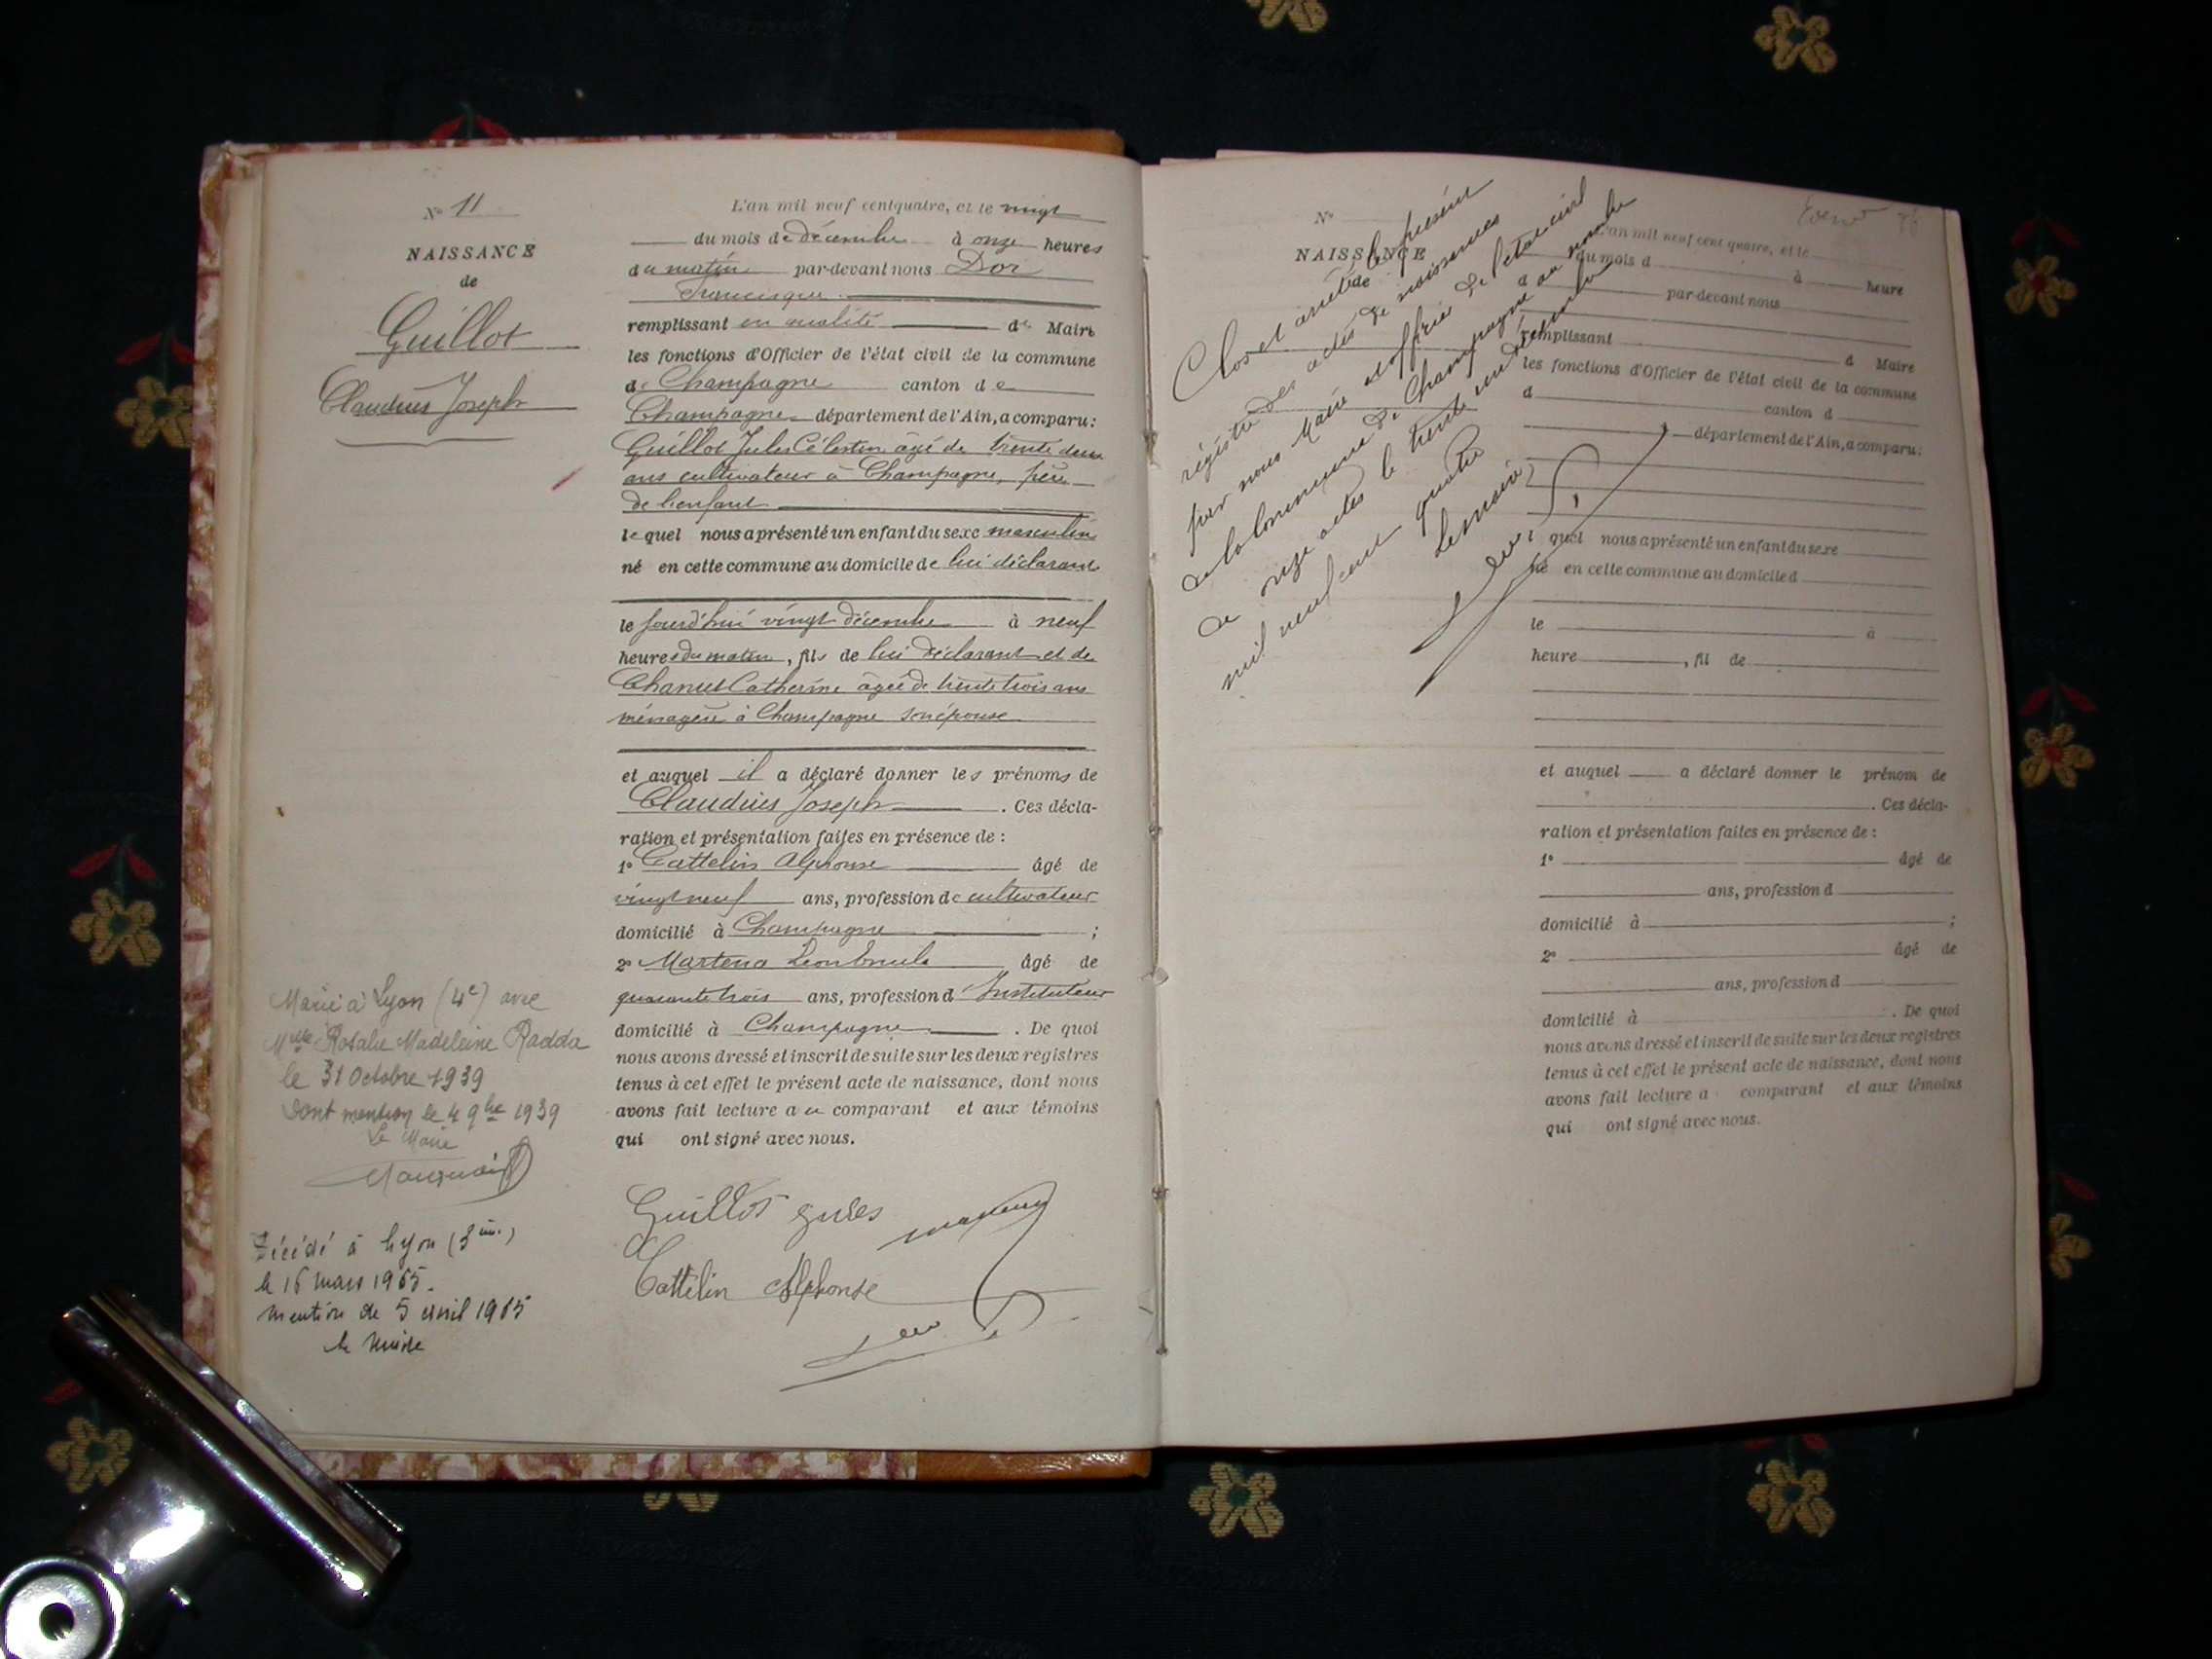 N° 11
NAISSANCE
de
Guillot
Claudius Joseph
L'an mil neuf cent quatre, et le vingt
du mois de décembre à onze heures
du matin par-devant nous Dor
Francisque
remplissant en qualité de Maire
les fonctions d'Officier de l'état civil de la commune
de Champagne canton de
Champagne département de l'Ain, a comparu:
Guillot Jules Célestin âgé de trente deux
ans cultivateur à Champagne, père
de l'enfant
lequel nous a présenté un enfant du sexe masculin
né en cette commune au domicile de lui déclarant
le jourd'hui vingt décembre à neuf
heures du matin, fils de lui déclarant et de
Catherine âgée de trente trois ans
ménagère à Champagne son épouse
et auquel il a déclaré donner les prénoms de
Claudius Joseph. Ces décla-
ration et présentation faites en présence de :
1° Cattelin Alphonse âgé de
vingt neuf ans, profession de cultivateur
domicilié à Champagne ;
2° âgé de
quarante trois ans, profession d'Instituteur
domicilié à Champagne. De quoi
nous avons dressé et inscrit de suite sur les deux registres
tenus à cet effet le présent acte de naissance, dont nous
avons fait lecture au comparant et aux témoins
qui ont signé avec nous.
Guillot Jules
Cattelin Alphonse
Marié à Lyon (4e) avec
Melle Rosalie Madeleine Radda
le 31 Octobre 1939
Dont mention le 4 9bre 1939
Le Maire
Décédé à Lyon
le 16 mars 1965.
mention du 5 avril 1965
le Maire
N°
NAISSANCE
de
Clos et arrêté le présent
registre des actes de naissances
par nous Maire et officier de l'état civil
de la Commune de Champagne au nombre
de onze actes le trente un décembre
mil neuf cent quatre
Le maire
L'an mil neuf cent quatre, et le
du mois d à heure
par-devant nous
remplissant d Maire
les fonctions d'Officier de l'état civil de la commune
d canton d
département de l'Ain, a comparu:
quel nous a présenté un enfant du sexe
né en cette commune au domicile d
le à
heure , fil de
et auquel a déclaré donner le prénom de
. Ces décla-
ration et présentation faites en présence de :
1° âgé de
ans, profession d
domicilié à ;
2° âgé de
ans, profession d
domicilié à . De quoi
nous avons dressé et inscrit de suite sur les deux registres
tenus à cet effet le présent acte de naissance, dont nous
avons fait lecture a comparant et aux témoins
qui ont signé avec nous.